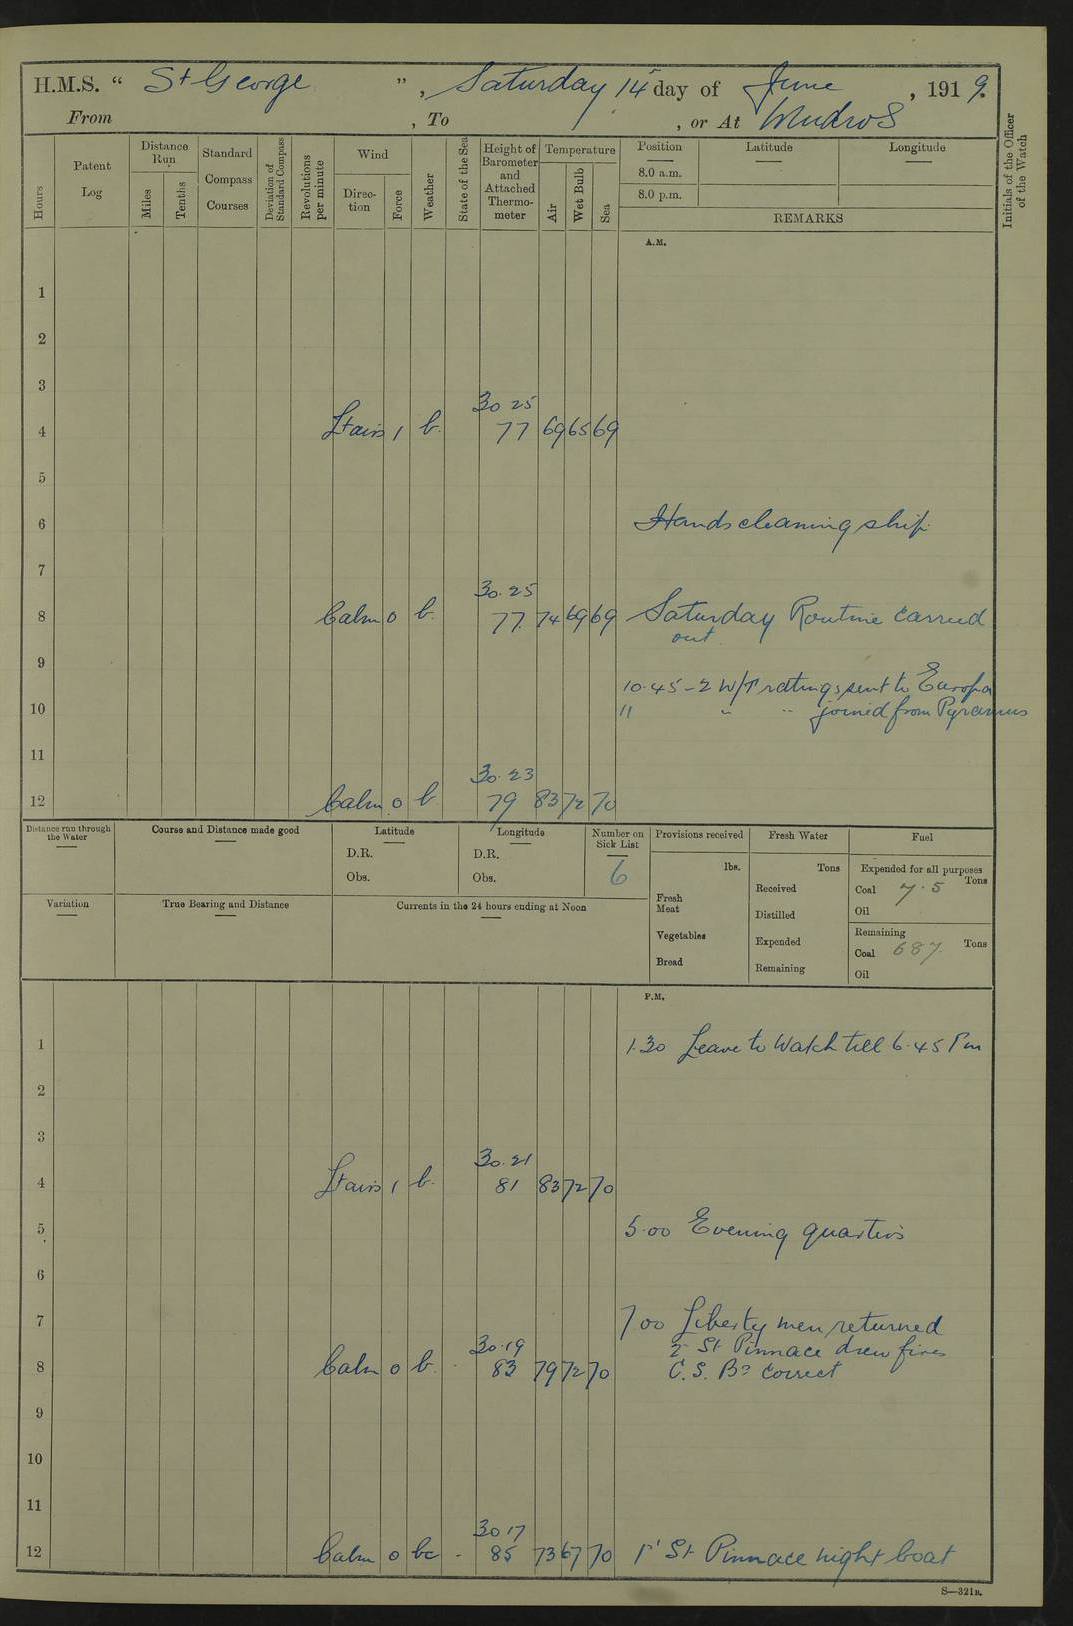 H.M.S. “ St George ”, Saturday 14th day of June, 1919.
From , To , or At Mudros
Hours
Patent Log
Distance Run
Miles
Tenths
Standard Compass Courses
Deviation of Standard Compass
Revolutions per minute
Wind
Direction
Force
Weather
State of the Sea
Height of Barometer and Attached Thermometer
Temperature
Air
Wet Bulb
Sea
Position
8.0 a.m.
8.0 p.m.
Latitude
Longitude
REMARKS
Initials of the Officer of the Watch
A.M.
1
2
3
30 25
4 Ltairs 1 b. 77 69 65 69
5
6 Hands cleaning ship.
7
30.25
8 Calm 0 b. 77. 74 69 69 Saturday Routine carried
out
9
10.45 - 2 W/T ratings sent to Europa
10 " " " joined from Pyramus
11
30.23
12 Calm 0 b 79 83 72 70
Distance run through the Water
Course and Distance made good
Latitude
D.R.
Obs.
Longitude
D.R.
Obs.
Number on Sick List
6
Provisions received
lbs.
Fresh Meat
Vegetables
Bread
Fresh Water
Tons
Received
Distilled
Expended
Remaining
Fuel
Expended for all purposes
Coal 7.5 Tons
Oil
Remaining
Coal 687. Tons
Oil
Variation
True Bearing and Distance
Currents in the 24 hours ending at Noon
P.M.
1 1.30 Leave to Watch till 6.45 Pm
2
3
30.21
4 Ltairs 1 b. 81 83 72 70
5 5.00 Evening quarters
6
7 7 00 Liberty men returned
30.19 2 St Pinnace drew fires
8 Calm 0 b. 83 79 72 70 C.S. Bs correct
9
10
11
30 17
12 Calm 0 bc - 85 73 67 70 1st St Pinnace night boat
S—321B.